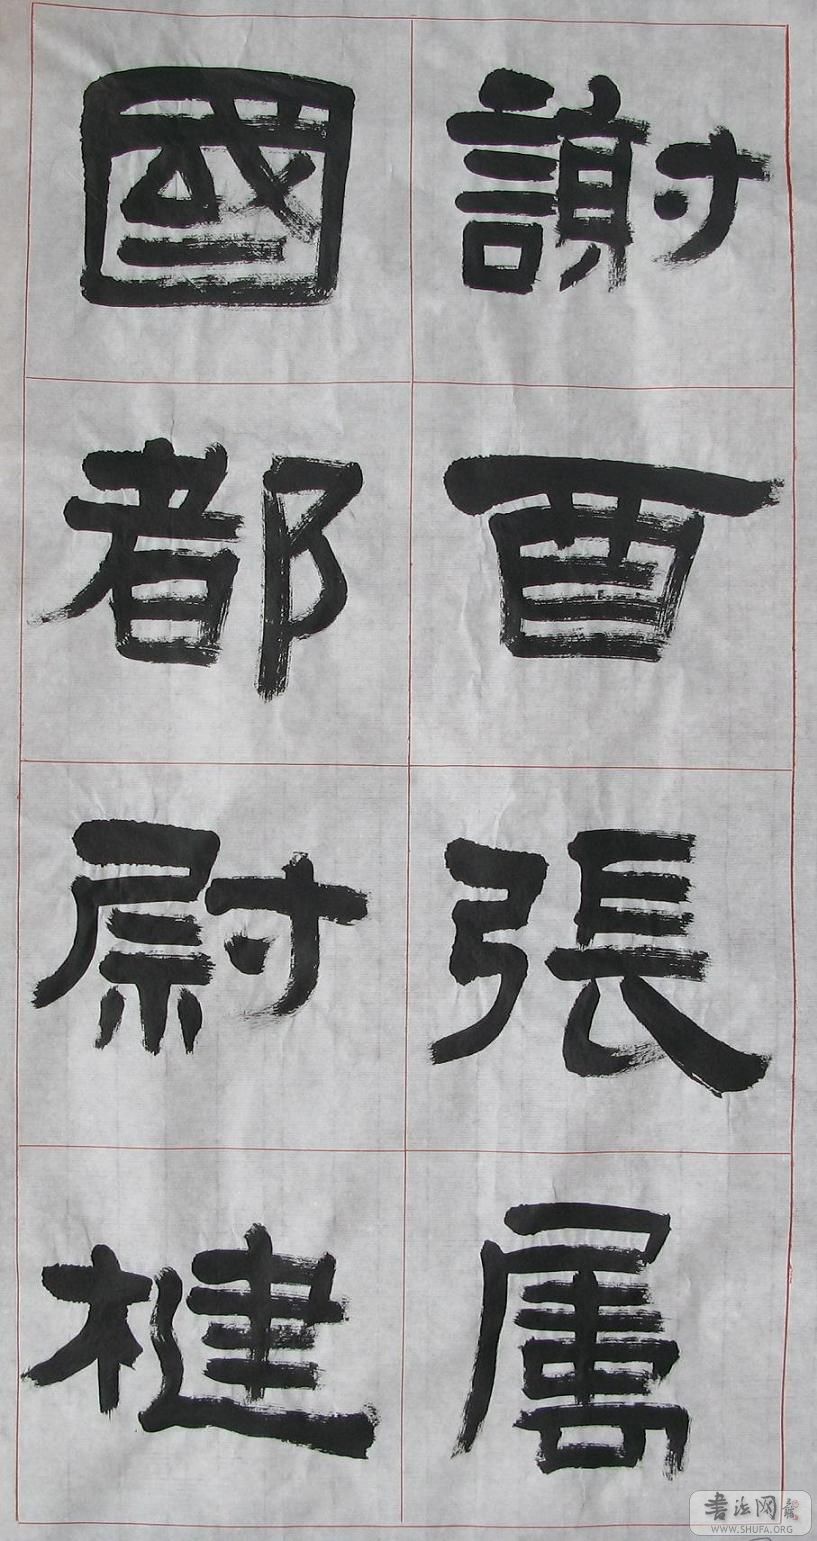 謝酉張屬
國都尉楗
書法网
WWW.SHUFA.ORG